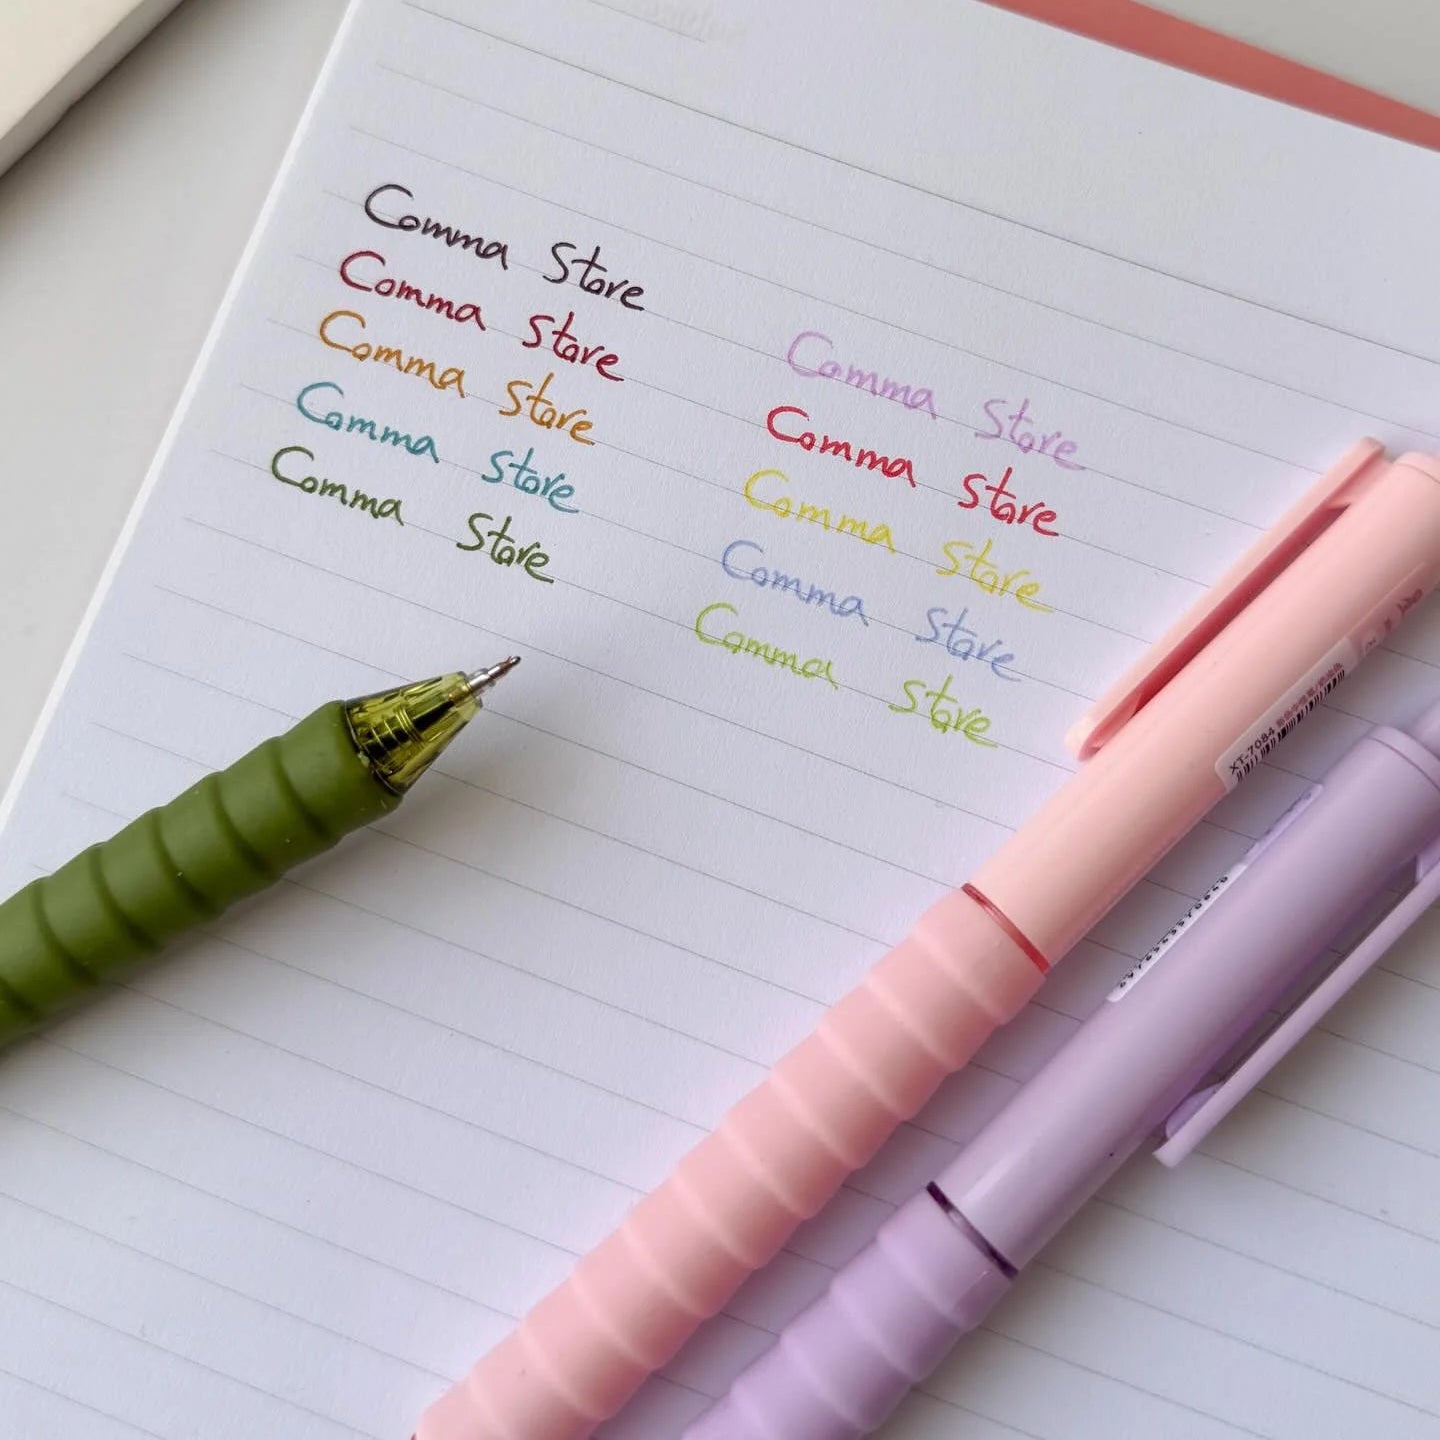 Comma Store
Comma Store
Comma Store
Comma Store
Comma Store
Comma Store
Comma Store
Comma Store
Comma Store
Comma Store
XT-7084